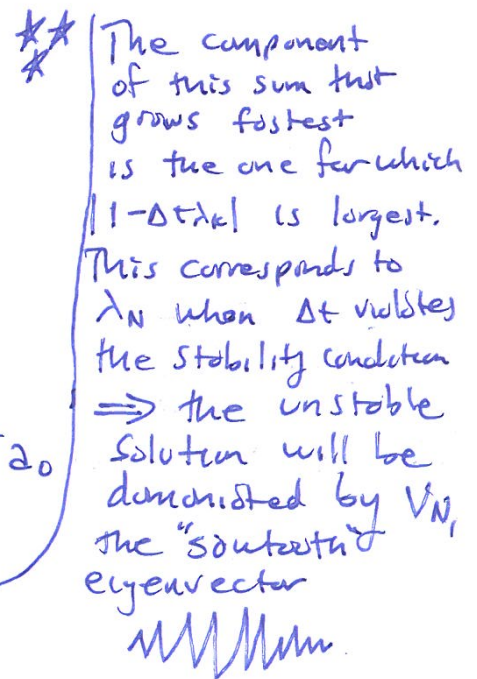 The component
of this sum that
grows fastest
is the one for which
|1-Δtλₖ| is largest.
This corresponds to
λ_N when Δt violates
the stability condition
⟹ the unstable
solution will be
a₀
dominated by V_N,
the "sawtooth"
eigenvector